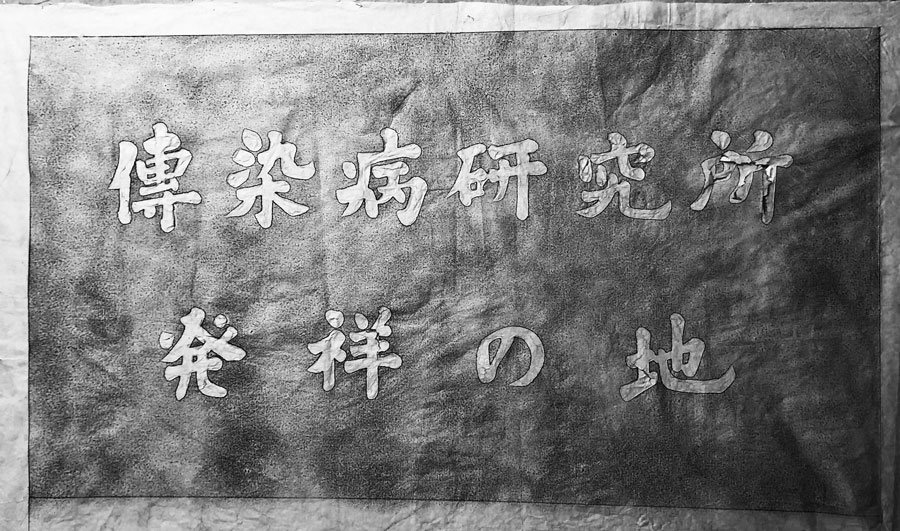 傳染病研究所
発祥の地